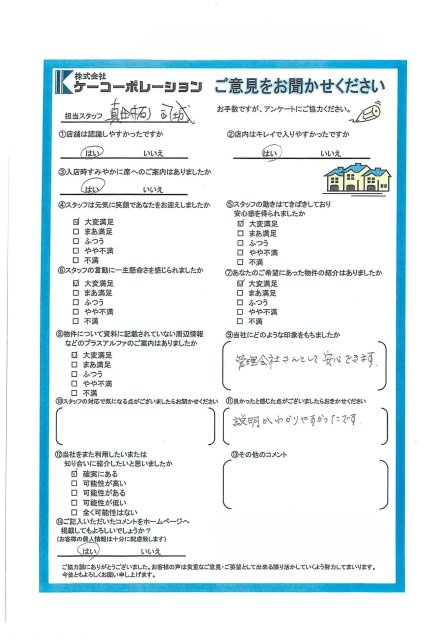 株式会社
ケーコーポレーション ご意見をお聞かせください
担当スタッフ
お手数ですが、アンケートにご協力ください。
①店舗は認識しやすかったですか
はい いいえ
②店内はキレイで入りやすかったですか
はい いいえ
③入店時すみやかに席へのご案内はありましたか
はい いいえ
④スタッフは元気に笑顔であなたをお迎えしましたか
☑ 大変満足
□ まあ満足
□ ふつう
□ やや不満
□ 不満
⑤スタッフの動きはてきぱきしており
安心感を得られましたか
☑ 大変満足
□ まあ満足
□ ふつう
□ やや不満
□ 不満
⑥スタッフの言動に一生懸命さを感じられましたか
☑ 大変満足
□ まあ満足
□ ふつう
□ やや不満
□ 不満
⑦あなたのご希望にあった物件の紹介はありましたか
☑ 大変満足
□ まあ満足
□ ふつう
□ やや不満
□ 不満
⑧物件について資料に記載されていない周辺情報
などのプラスアルファのご案内はありましたか
☑ 大変満足
□ まあ満足
□ ふつう
□ やや不満
□ 不満
⑨当社にどのような印象をもちましたか
管理会社さんとして安心できます.
⑩スタッフの対応で気になる点がございましたらお聞かせください
⑪良かったと感じた点がございましたらおきかせください
説明がわかりやすかったです.
⑫当社をまた利用したいまたは
知り合いに紹介したいと思いましたか
☑ 確実にある
□ 可能性が高い
□ 可能性がある
□ 可能性が低い
□ 全く可能性はない
⑬その他のコメント
⑭ご記入いただいたコメントをホームページへ
掲載してもよろしいでしょうか?
(お客様の個人情報は十分に配慮致します)
はい いいえ
ご協力誠にありがとうございました。お客様の声は貴重なご意見・ご要望として出来る限り活かしていくよう努力してまいります。
今後ともよろしくお願い申し上げます。